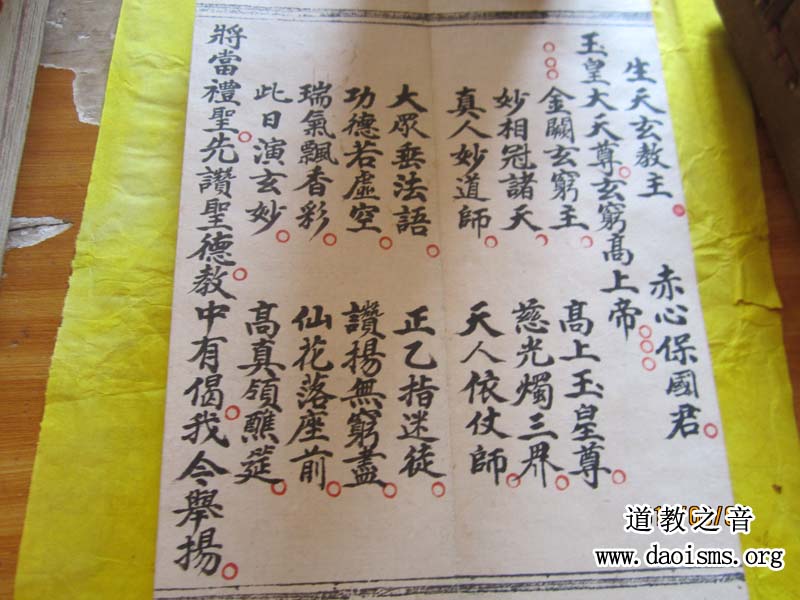 生天玄教主 赤心保國君
玉皇大天尊玄窮高上帝
金闕玄窮主 高上玉皇尊
妙相冠諸天 慈光燭三界
真人妙道師 天人依仗師
大眾垂法語 正乙指迷徒
功德若虛空 讚揚無窮盡
瑞氣飄香彩 仙花落座前
此日演玄妙 高真領醮筵
將當禮聖先讚聖德教中有偈我今舉揚
道教之音
www.daoisms.org